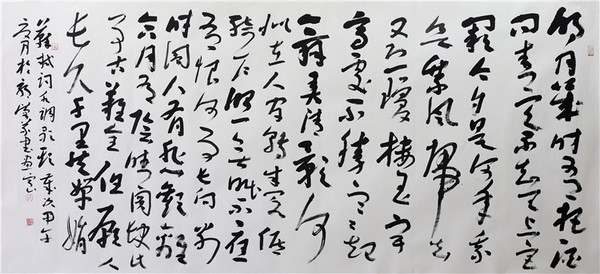 明月幾時有把酒
問青天不知天上宮
闕今夕是何年我
欲乘風歸去
又恐瓊樓玉宇
高處不勝寒起
舞弄清影何
似在人間轉朱閣低
綺戶照無眠不應
有恨何事長向別
時圓人有悲歡離
合月有陰晴圓缺此
事古難全但願人
長久千里共嬋娟
蘇軾詞水調歌頭 歲次甲午
夏月於